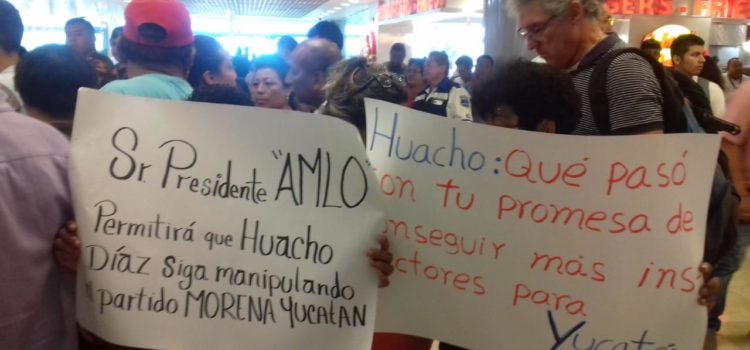 GERS · FRIE
Sr. Presidente "AMLO"
Permitirá que Huacho
Díaz siga manipulando
partido MORENA YUCATAN
Huacho: Qué pasó
on tu promesa de
onseguir más ins
ctores para
Yucatá